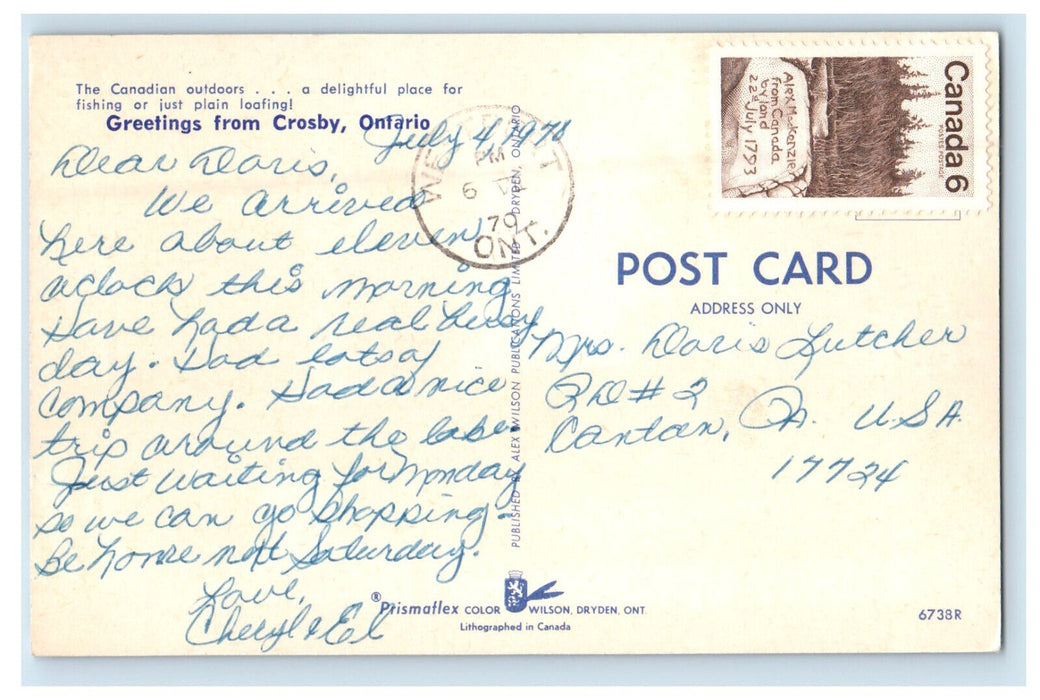 The Canadian outdoors . . . a delightful place for
fishing or just plain loafing!
Greetings from Crosby, Ontario
July 4, 1970
Dear Doris,
We arrived
here about eleven
oclock this morning
Have had a real busy
day. Had lots of
company. Had a nice
trip around the lake.
Just waiting for Monday
so we can go shopping.
Be home next Saturday.
Love,
Cheryl & El
PUBLISHED BY ALEX WILSON PUBLICATIONS LIMITED DRYDEN, ONTARIO
PM
6 VII
70
ONT.
Canada 6
POSTES POSTAGE
Alex. McKenzie
from Canada
by land
22d July 1793
POST CARD
ADDRESS ONLY
Mrs. Doris Lutcher
RD # 2
Canton, Pa. USA.
17724
®Prismaflex COLOR WILSON, DRYDEN, ONT.
Lithographed in Canada
6738R